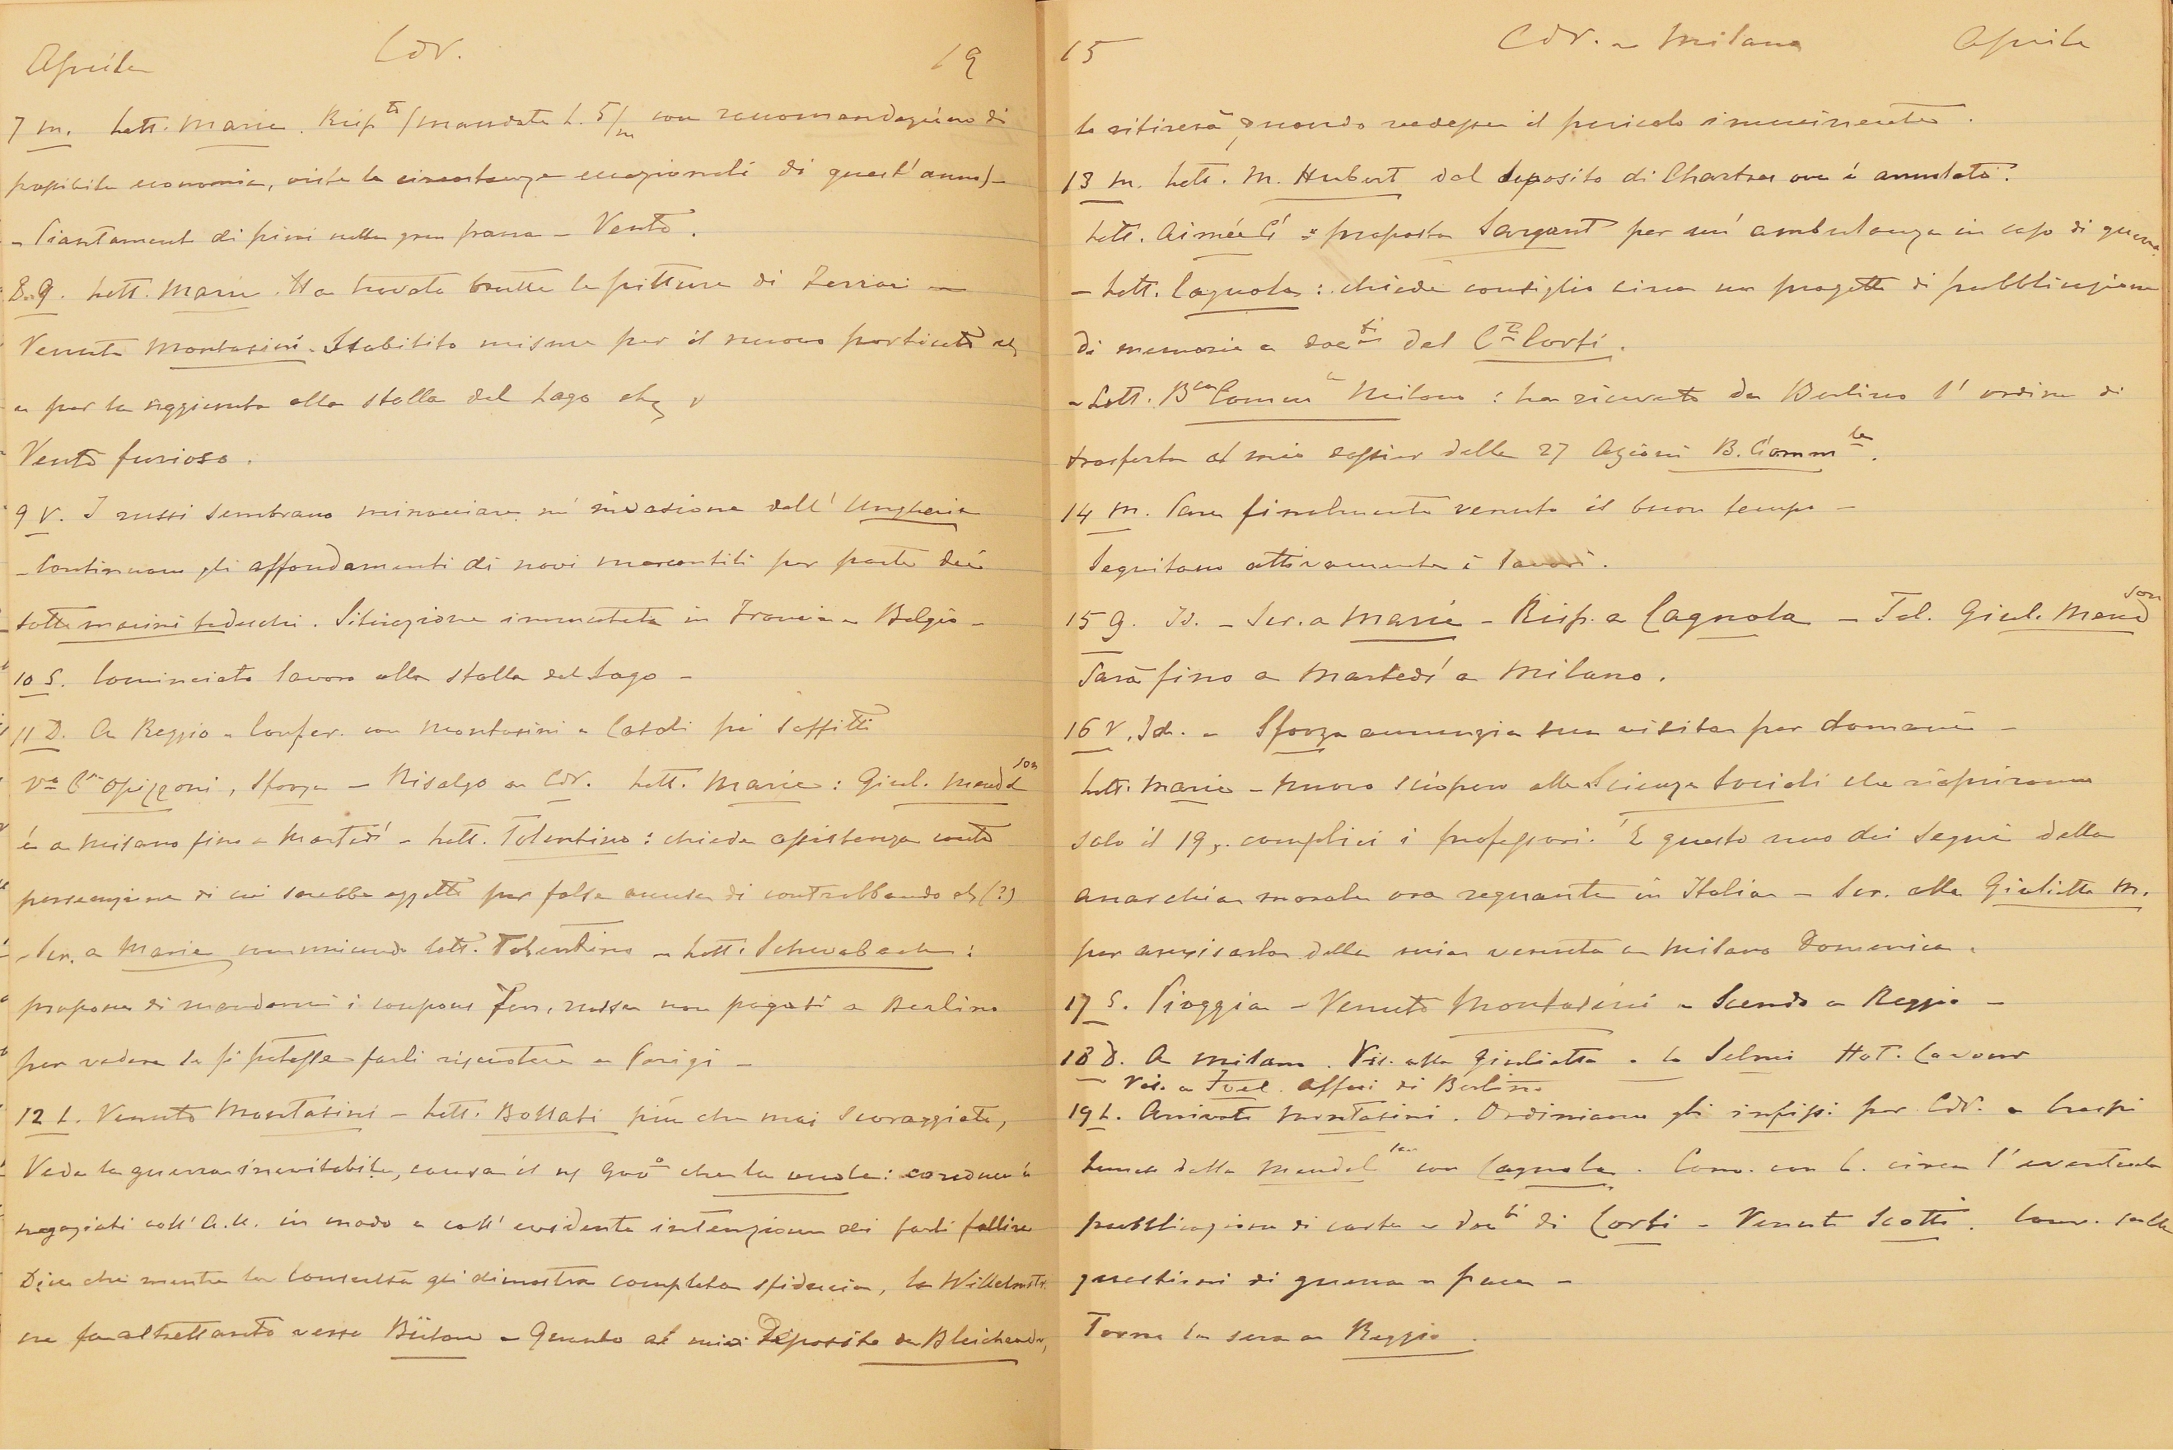 Aprile CdV. 19
7 M. Lett. Marie. Risp.ta (mandate L. 5/m con raccomandazione di
possibile economia, viste le circostanze eccezionali di quest'anno) -
- Piantamento di pini nella gran - Vento.
8. G. Lett. Marie. Ha trovate brutte le pitture di Ferrari -
Venuto Montasini. Stabilito misure per il nuovo porticato
e per la aggiunta alla stalla del Lago
Vento furioso.
9 V. I russi sembrano minacciare un' invasione dell' Ungheria
- Continuano gli affondamenti di navi mercantili per parte dei
sottomarini tedeschi. Situazione immutata in Francia e Belgio -
10 S. Cominciato lavoro alla stalla del Lago -
11 D. A Reggio - Confer. con Montasini e Casoli pei soffitti
Va Opizzoni, Sforza - Risalgo a CdV. Lett. Marie: Giul. Mendelson
è a Milano fino a Martedì - Lett. Tolentino: chiede assistenza contro
persecuzione di cui sarebbe oggetto per falsa accusa di contrabbando (?)
- Scr. a Marie comunicando lett. Tolentino - Lett. Schwabach:
propone di mandarmi i coupons Ferr. russe non pagati a Berlino
per vedere se si potesse farli riscuotere a Parigi -
12 L. Venuto Montasini - Lett. Bollati più che mai scoraggiato,
Vede la guerra inevitabile, causa il Gov.o che la vuole: conduce i
negoziati coll' A.U. in modo e coll' evidente intenzione di farli fallire
Dice che mentre la Consulta gli dimostra completa sfiducia, la Wilhelmstr.
ne fa altrettanto verso Bülow - Quanto al mio Deposito da Bleichröder,
15 CdV. e Milano Aprile
lo ritirerà quando vedesse il pericolo imminente.
13 M. Lett. M. Hubert dal deposito di Chartres ove è annulato.
Lett. Aimée proposta Sargent per un' ambulanza in caso di guerra
- Lett. Cagnola: chiede consiglio circa un progetto di pubblicazione
di memorie e docti del Cte Corti.
- Lett. Bca Comm.le Milano: ha ricevuto da Berlino l' ordine di
trasferta al mio dossier delle 27 Azioni B. Comm.le.
14 M. Pare finalmente venuto il buon tempo -
Seguitano attivamente i lavori.
15 G. Id. - Scr. a Marie - Risp. a Cagnola - Tel. Giul. Mendson
Sarà fino a Martedì a Milano.
16 V. Id. - Sforza annunzia sua visita per domani -
Lett. Marie - nuovo sciopero alle Scienze Sociali che riapriranno
solo il 19, complici i professori. È questo uno dei segni della
anarchia morale ora regnante in Italia - Scr. alla Giulietta M.
per avvisarla della mia venuta a Milano Domenica.
17 S. Pioggia - Venuto Montasini - Scendo a Reggio -
18 D. A Milano. Vis. alla Giulietta e la Selmi Hot. Cavour
Vis. a Joel. Affari di Berlino
19 L. Arrivato Montasini. Ordiniamo gli infissi per CdV. a Crespi
della Mendelson con Cagnola. Conv. con C. circa l'eventuale
pubblicazione di carte e docti di Corti - Venuto Scotti. Conv. sulle
questioni di guerra e pace -
Torno la sera a Reggio.